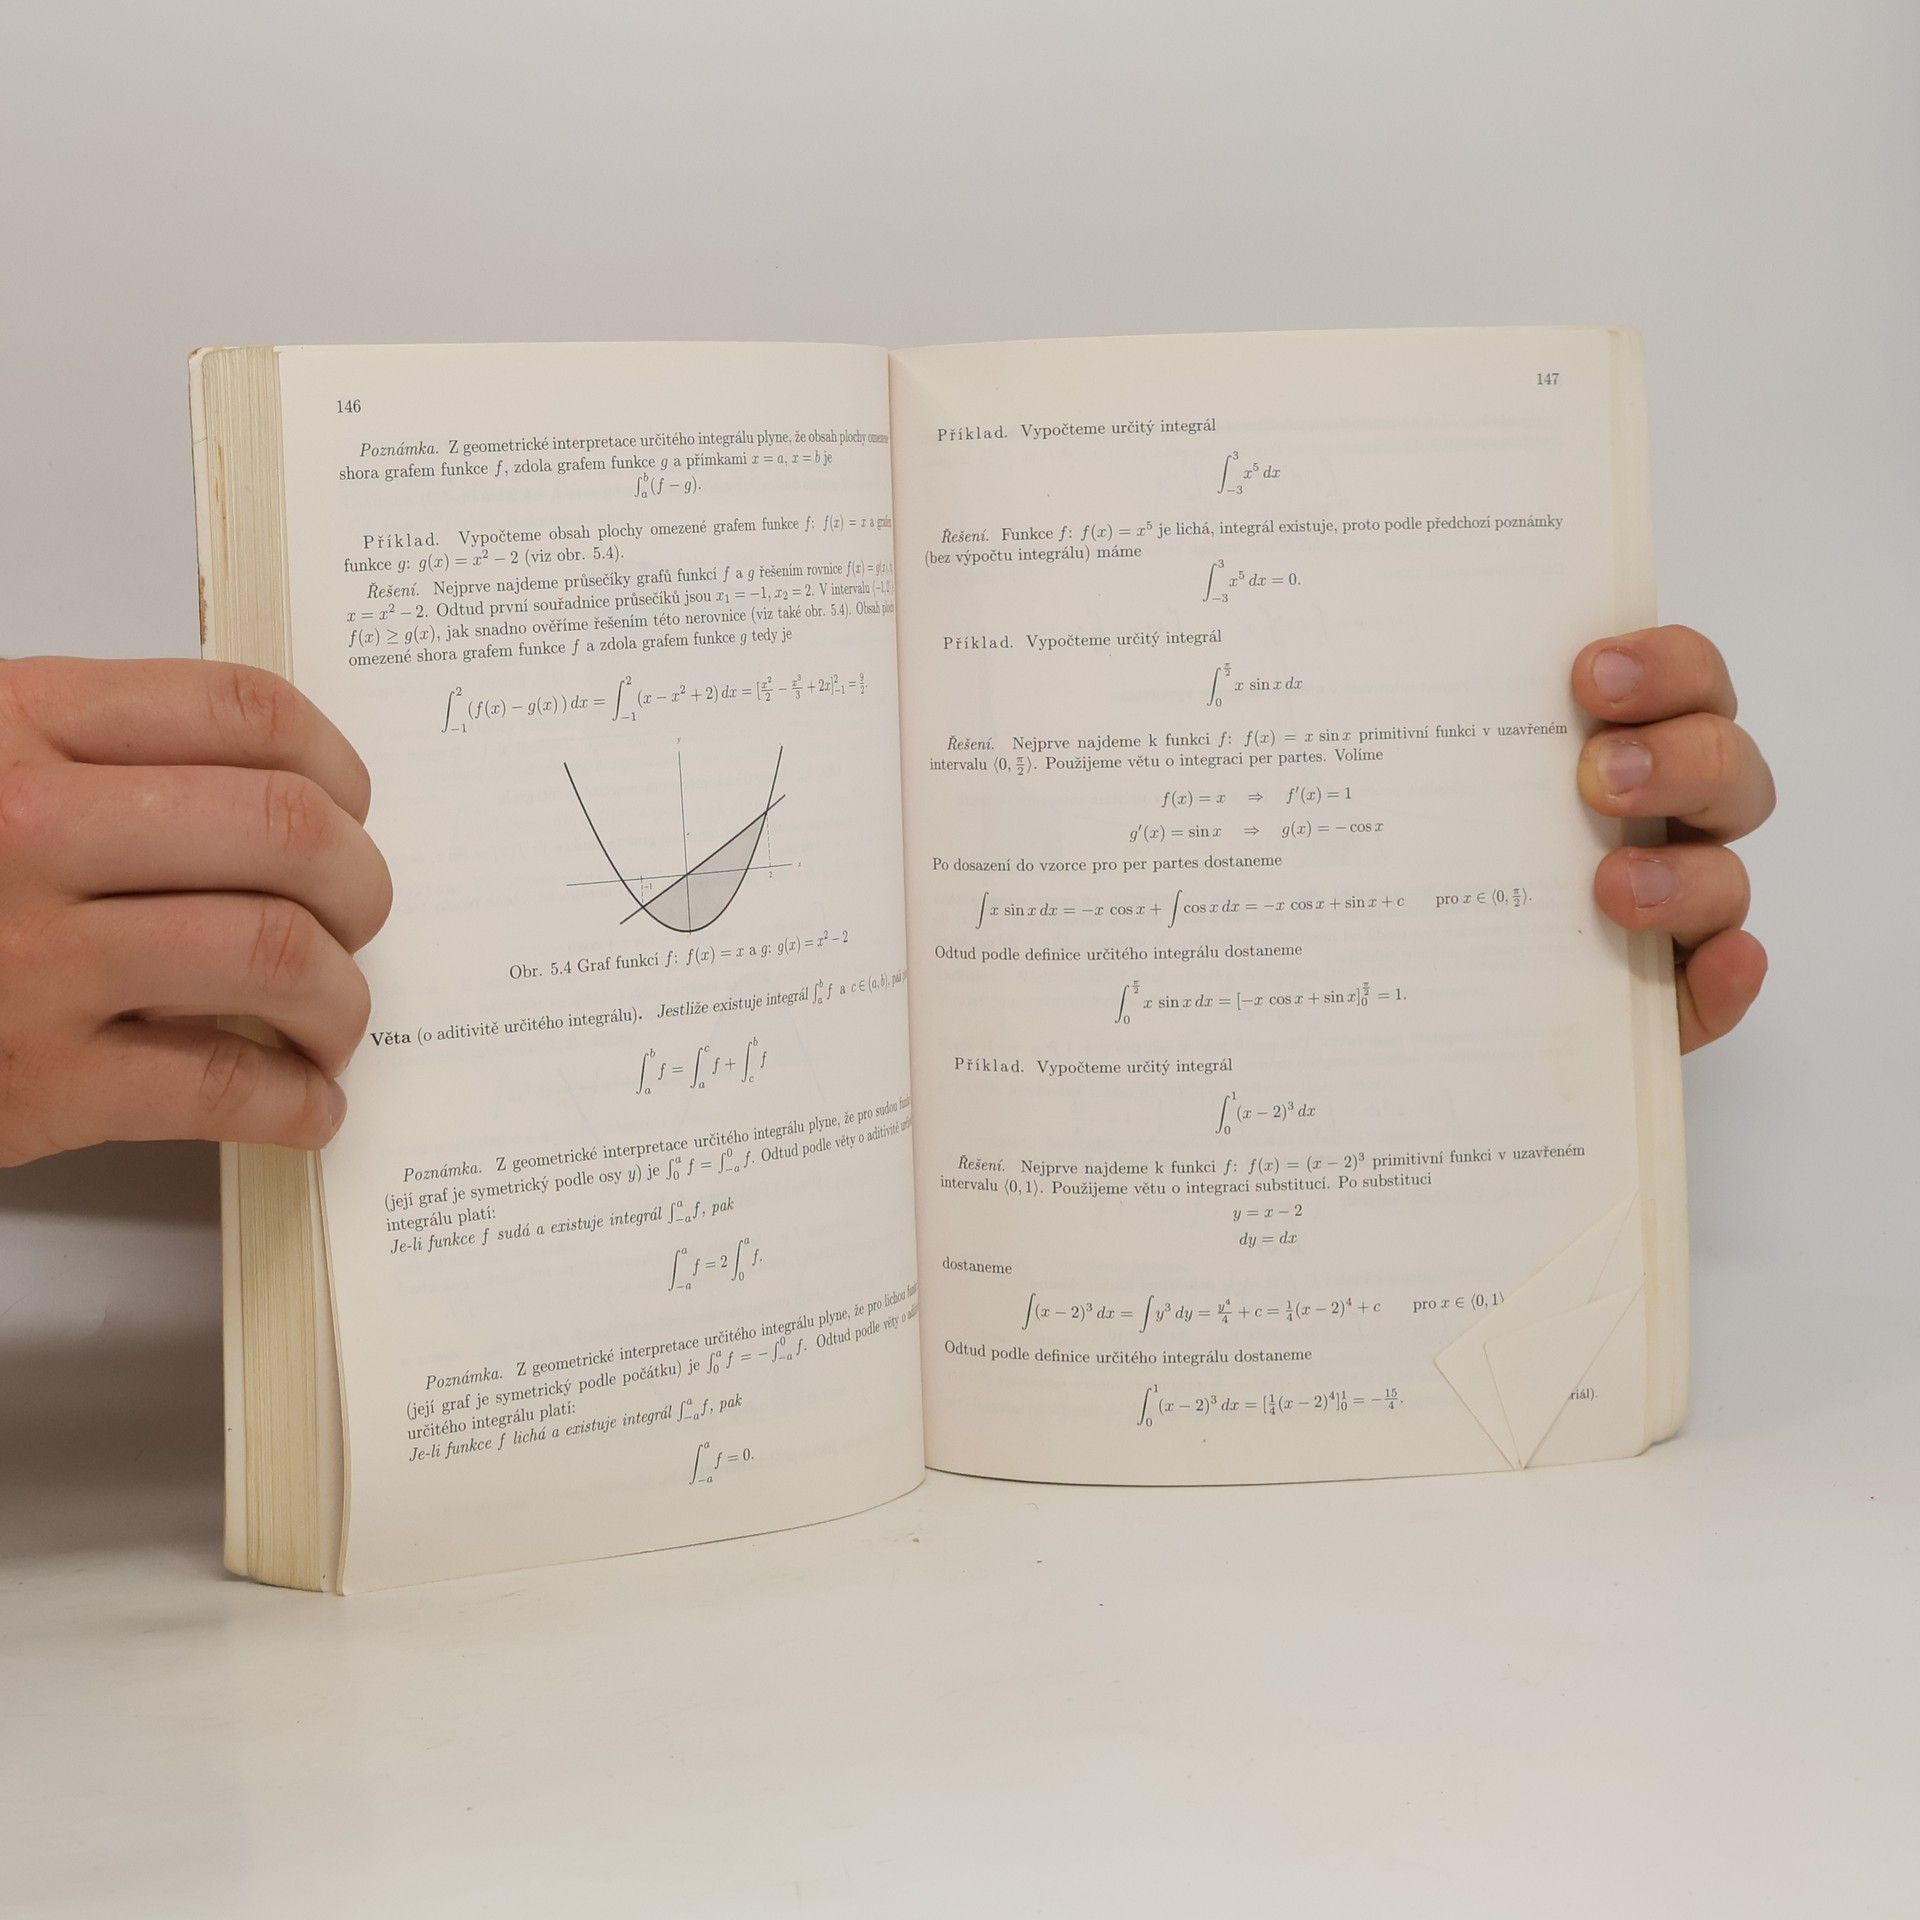 146
Poznámka. Z geometrické interpretace určitého integrálu plyne, že obsah plochy
shora grafem funkce f, zdola grafem funkce g a přímkami x = a, x = b je
∫_a^b (f − g).
Příklad. Vypočteme obsah plochy omezené grafem funkce f: f(x) = x a
funkce g: g(x) = x² − 2 (viz obr. 5.4).
Řešení. Nejprve najdeme průsečíky grafů funkcí f a g řešením rovnice f(x) =
x = x² − 2. Odtud první souřadnice průsečíků jsou x₁ = −1, x₂ = 2. V intervalu
f(x) ≥ g(x), jak snadno ověříme řešením této nerovnice (viz také obr. 5.4). Obsah
omezené shora grafem funkce f a zdola grafem funkce g tedy je
∫_{−1}^2 (f(x) − g(x)) dx = ∫_{−1}^2 (x − x² + 2) dx = [x²/2 − x³/3 + 2x]_{−1}^2 = 9/2.
y
x
−1
2
Obr. 5.4 Graf funkcí f: f(x) = x a g: g(x) = x² − 2
Věta (o aditivitě určitého integrálu). Jestliže existuje integrál ∫_a^b f a c ∈ (a, b),
∫_a^b f = ∫_a^c f + ∫_c^b f
Poznámka. Z geometrické interpretace určitého integrálu plyne, že pro sudou
(její graf je symetrický podle osy y) je ∫_0^a f = ∫_{−a}^0 f. Odtud podle věty o aditivitě
integrálu platí:
Je-li funkce f sudá a existuje integrál ∫_{−a}^a f, pak
∫_{−a}^a f = 2 ∫_0^a f.
Poznámka. Z geometrické interpretace určitého integrálu plyne, že pro lichou
(její graf je symetrický podle počátku) je ∫_0^a f = − ∫_{−a}^0 f. Odtud podle věty o
určitého integrálu platí:
Je-li funkce f lichá a existuje integrál ∫_{−a}^a f, pak
∫_{−a}^a f = 0.
147
Příklad. Vypočteme určitý integrál
∫_{−3}^3 x⁵ dx
Řešení. Funkce f: f(x) = x⁵ je lichá, integrál existuje, proto podle předchozí poznámky
(bez výpočtu integrálu) máme
∫_{−3}^3 x⁵ dx = 0.
Příklad. Vypočteme určitý integrál
∫_0^{π/2} x sin x dx
Řešení. Nejprve najdeme k funkci f: f(x) = x sin x primitivní funkci v uzavřeném
intervalu ⟨0, π/2⟩. Použijeme větu o integraci per partes. Volíme
f(x) = x ⇒ f′(x) = 1
g′(x) = sin x ⇒ g(x) = − cos x
Po dosazení do vzorce pro per partes dostaneme
∫ x sin x dx = −x cos x + ∫ cos x dx = −x cos x + sin x + c pro x ∈ ⟨0, π/2⟩.
Odtud podle definice určitého integrálu dostaneme
∫_0^{π/2} x sin x dx = [−x cos x + sin x]_0^{π/2} = 1.
Příklad. Vypočteme určitý integrál
∫_0^1 (x − 2)³ dx
Řešení. Nejprve najdeme k funkci f: f(x) = (x − 2)³ primitivní funkci v uzavřeném
intervalu ⟨0, 1⟩. Použijeme větu o integraci substitucí. Po substituci
y = x − 2
dy = dx
dostaneme
∫(x − 2)³ dx = ∫ y³ dy = y⁴/4 + c = 1/4(x − 2)⁴ + c pro x ∈ ⟨0, 1⟩
Odtud podle definice určitého integrálu dostaneme
∫_0^1 (x − 2)³ dx = [1/4(x − 2)⁴]_0^1 = −15/4.
riál).